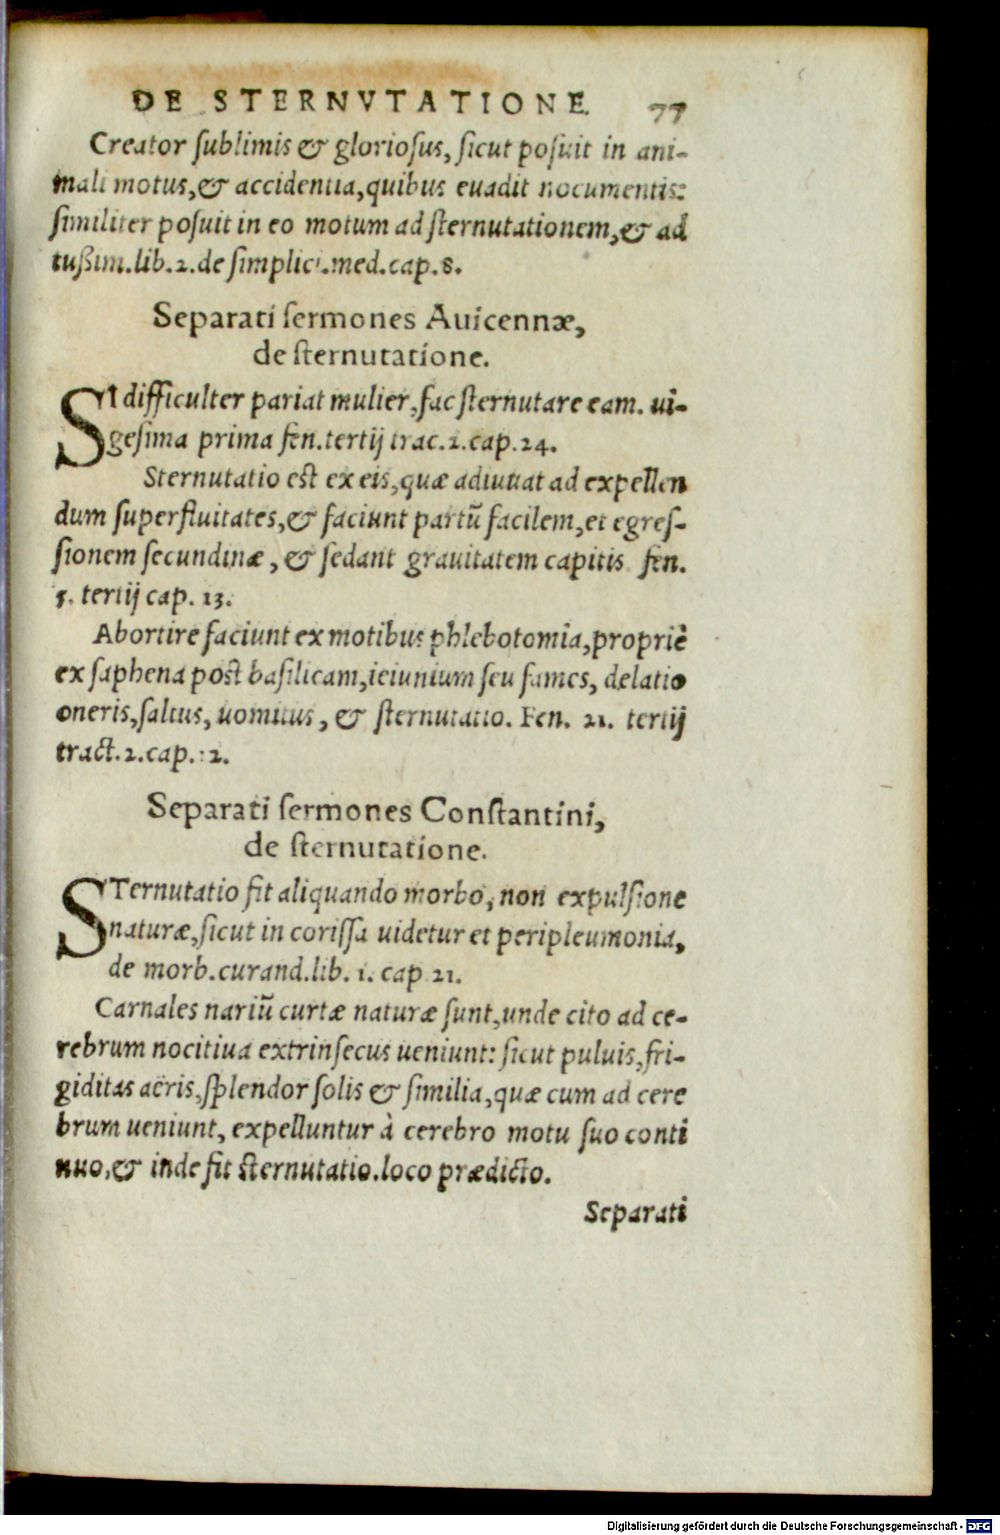 DE STERNVTATIONE. 77
Creator ſublimis & glorioſus, ſicut poſuit in ani-
mali motus, & accidentia, quibus euadit nocumentis:
ſimiliter poſuit in eo motum ad ſternutationem, & ad
tußim. lib. 2. de ſimplici. med. cap. 8.
Separati ſermones Auicennæ,
de ſternutatione.
SI difficulter pariat mulier, fac ſternutare eam. ui-
geſima prima fen. tertij trac. 2. cap. 24.
Sternutatio eſt ex eis, quæ adiuuat ad expellen
dum ſuperfluitates, & faciunt partũ facilem, et egreſ-
ſionem ſecundinæ, & ſedant grauitatem capitis fen.
5. tertij cap. 13.
Abortire faciunt ex motibus phlebotomia, propriè
ex ſaphena poſt baſilicam, ieiunium ſeu fames, delatio
oneris, ſaltus, uomitus, & ſternutatio. Fen. 21. tertij
tract. 2. cap. 12.
Separati ſermones Conſtantini,
de ſternutatione.
STernutatio fit aliquando morbo, non expulſione
naturæ, ſicut in coriſſa uidetur et peripleumonia,
de morb. curand. lib. 1. cap 21.
Carnales nariũ curtæ naturæ ſunt, unde cito ad ce-
rebrum nocitiua extrinſecus ueniunt: ſicut puluis, fri-
giditas aëris, ſplendor ſolis & ſimilia, quæ cum ad cere
brum ueniunt, expelluntur à cerebro motu ſuo conti
nuo, & inde fit ſternutatio. loco prædicto.
Separati
Digitalisierung gefördert durch die Deutsche Forschungsgemeinschaft - DFG